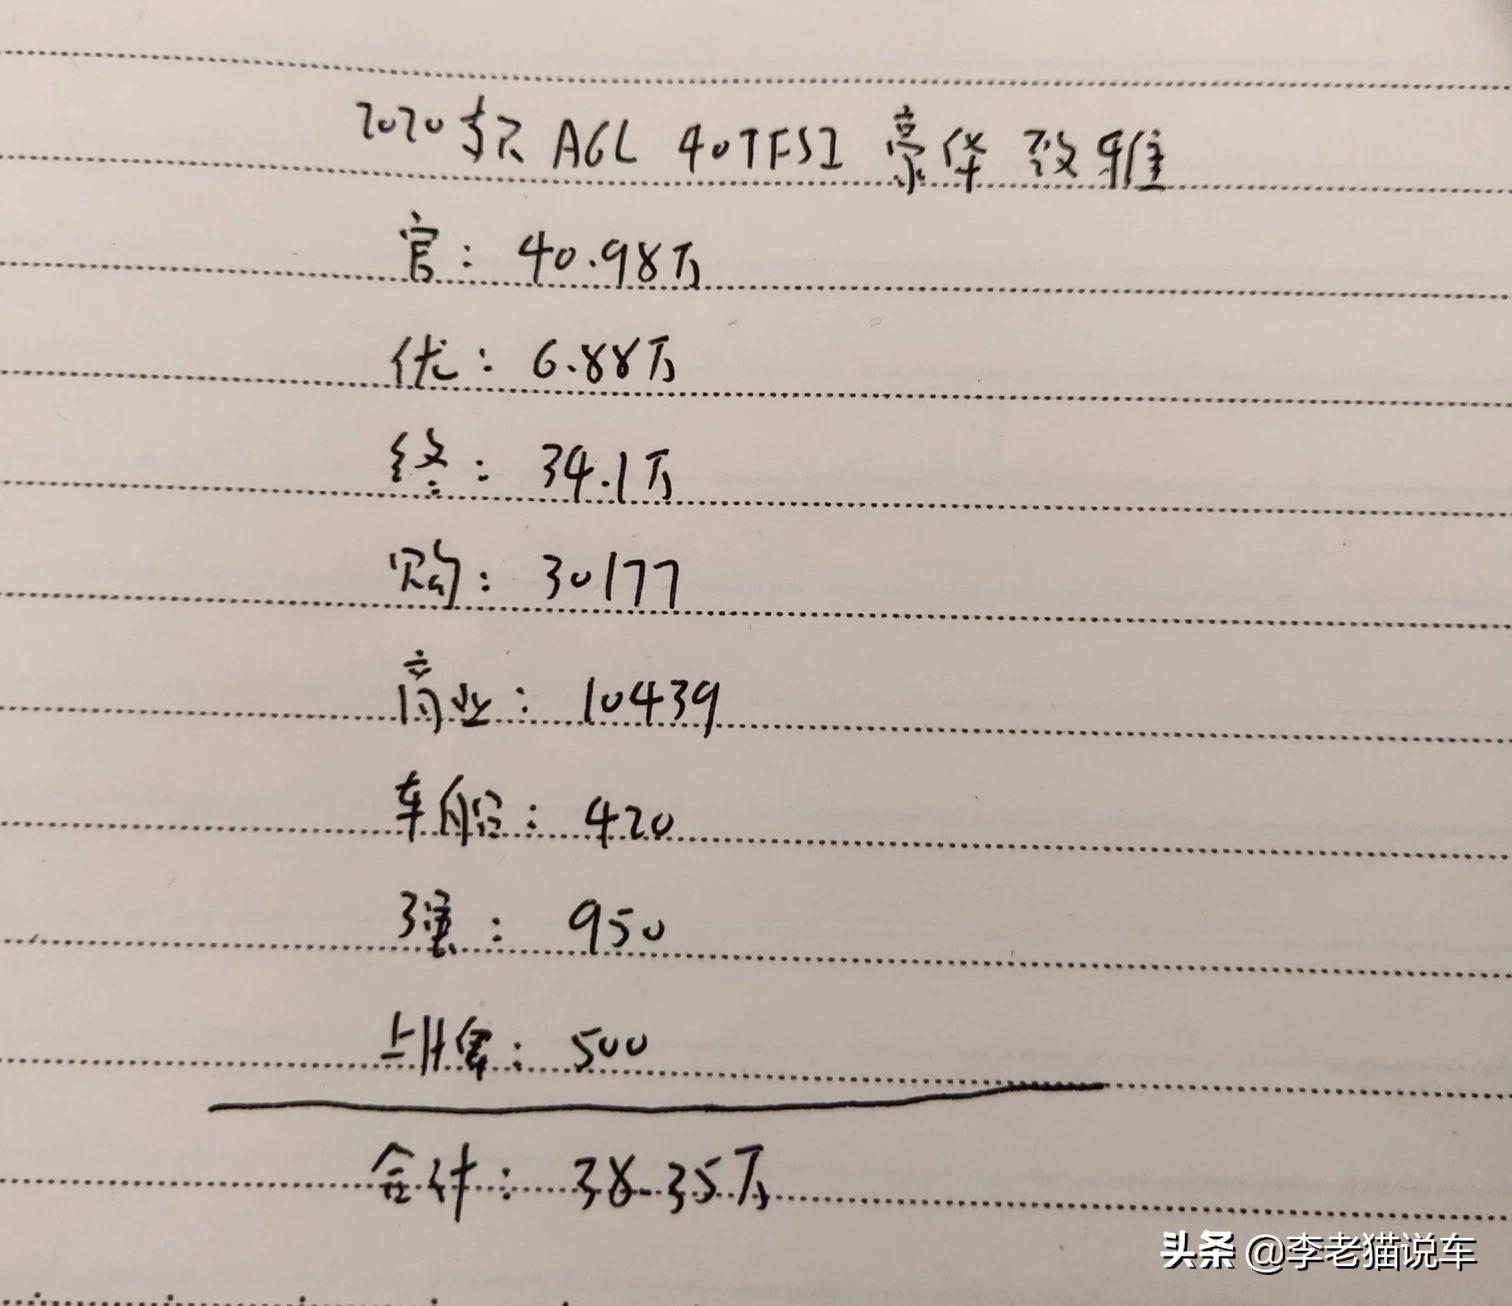 2020款 A6L 40TFSI 豪华致雅
官：40.98万
优：6.88万
终：34.1万
购：30177
商业：10439
车船：420
强：950
上牌：500
合计：38.35万
头条 @李老猫说车